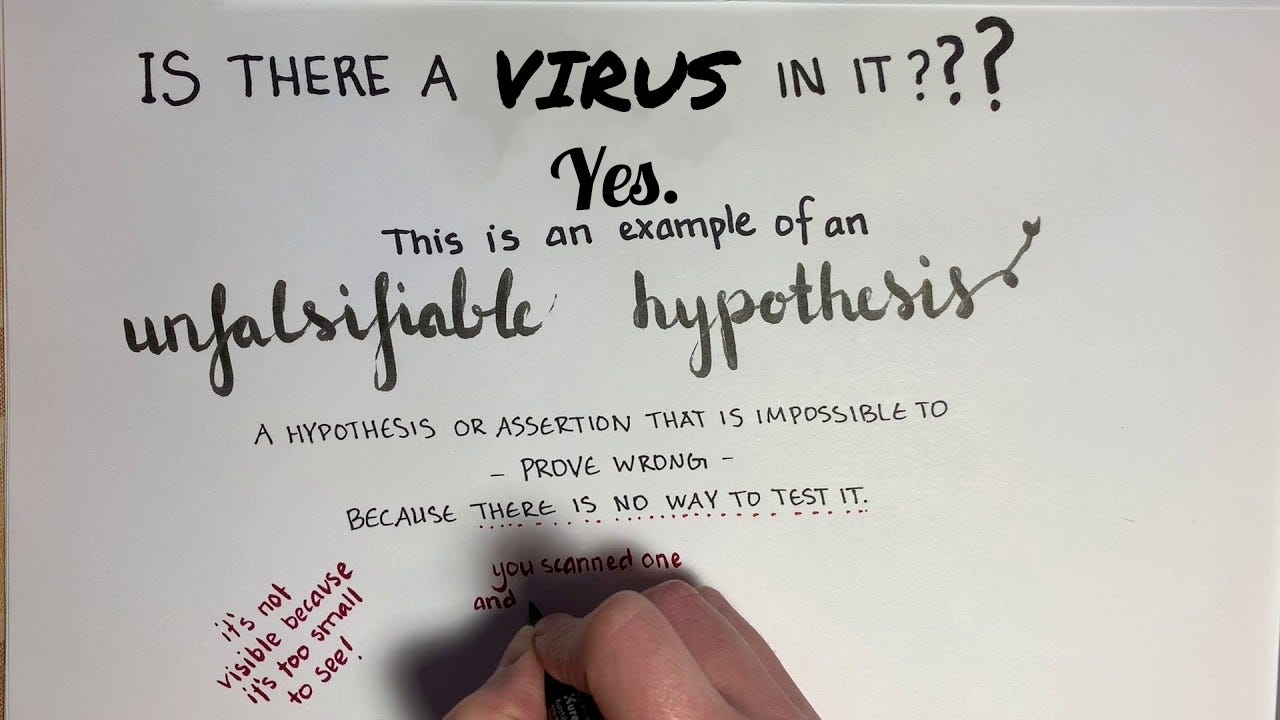 IS THERE A VIRUS IN IT???
Yes.
This is an example of an
unfalsifiable hypothesis
A HYPOTHESIS OR ASSERTION THAT IS IMPOSSIBLE TO
- PROVE WRONG -
BECAUSE THERE IS NO WAY TO TEST IT.
you scanned one
and
it's not
visible because
it's too small
to see!